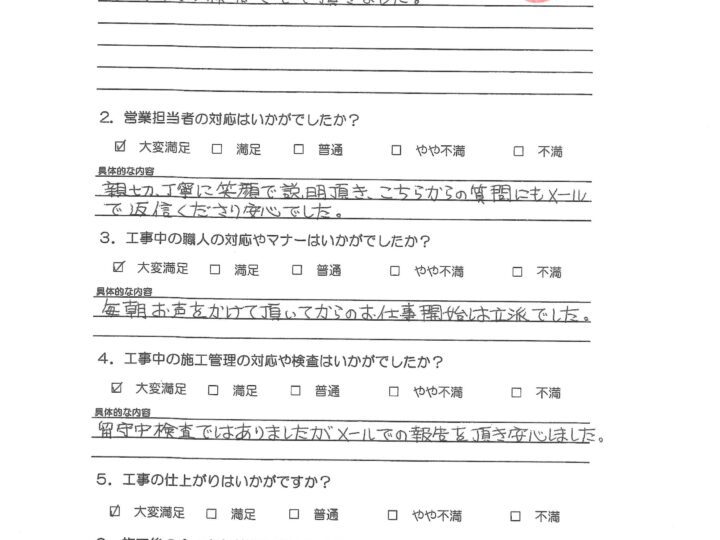 頂きました。
2．営業担当者の対応はいかがでしたか？
☑ 大変満足 □ 満足 □ 普通 □ やや不満 □ 不満
具体的な内容
親切、丁寧に笑顔で説明頂き、こちらからの質問にもメール
で返信くださり安心でした。
3．工事中の職人の対応やマナーはいかがでしたか？
☑ 大変満足 □ 満足 □ 普通 □ やや不満 □ 不満
具体的な内容
毎朝お声をかけて頂いてからのお仕事開始は立派でした。
4．工事中の施工管理の対応や検査はいかがでしたか？
☑ 大変満足 □ 満足 □ 普通 □ やや不満 □ 不満
具体的な内容
留守中検査ではありましたがメールでの報告を頂き安心しました。
5．工事の仕上がりはいかがですか？
☑ 大変満足 □ 満足 □ 普通 □ やや不満 □ 不満